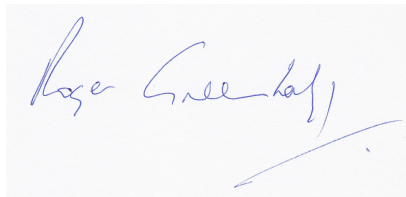 Roger Greenhalgh